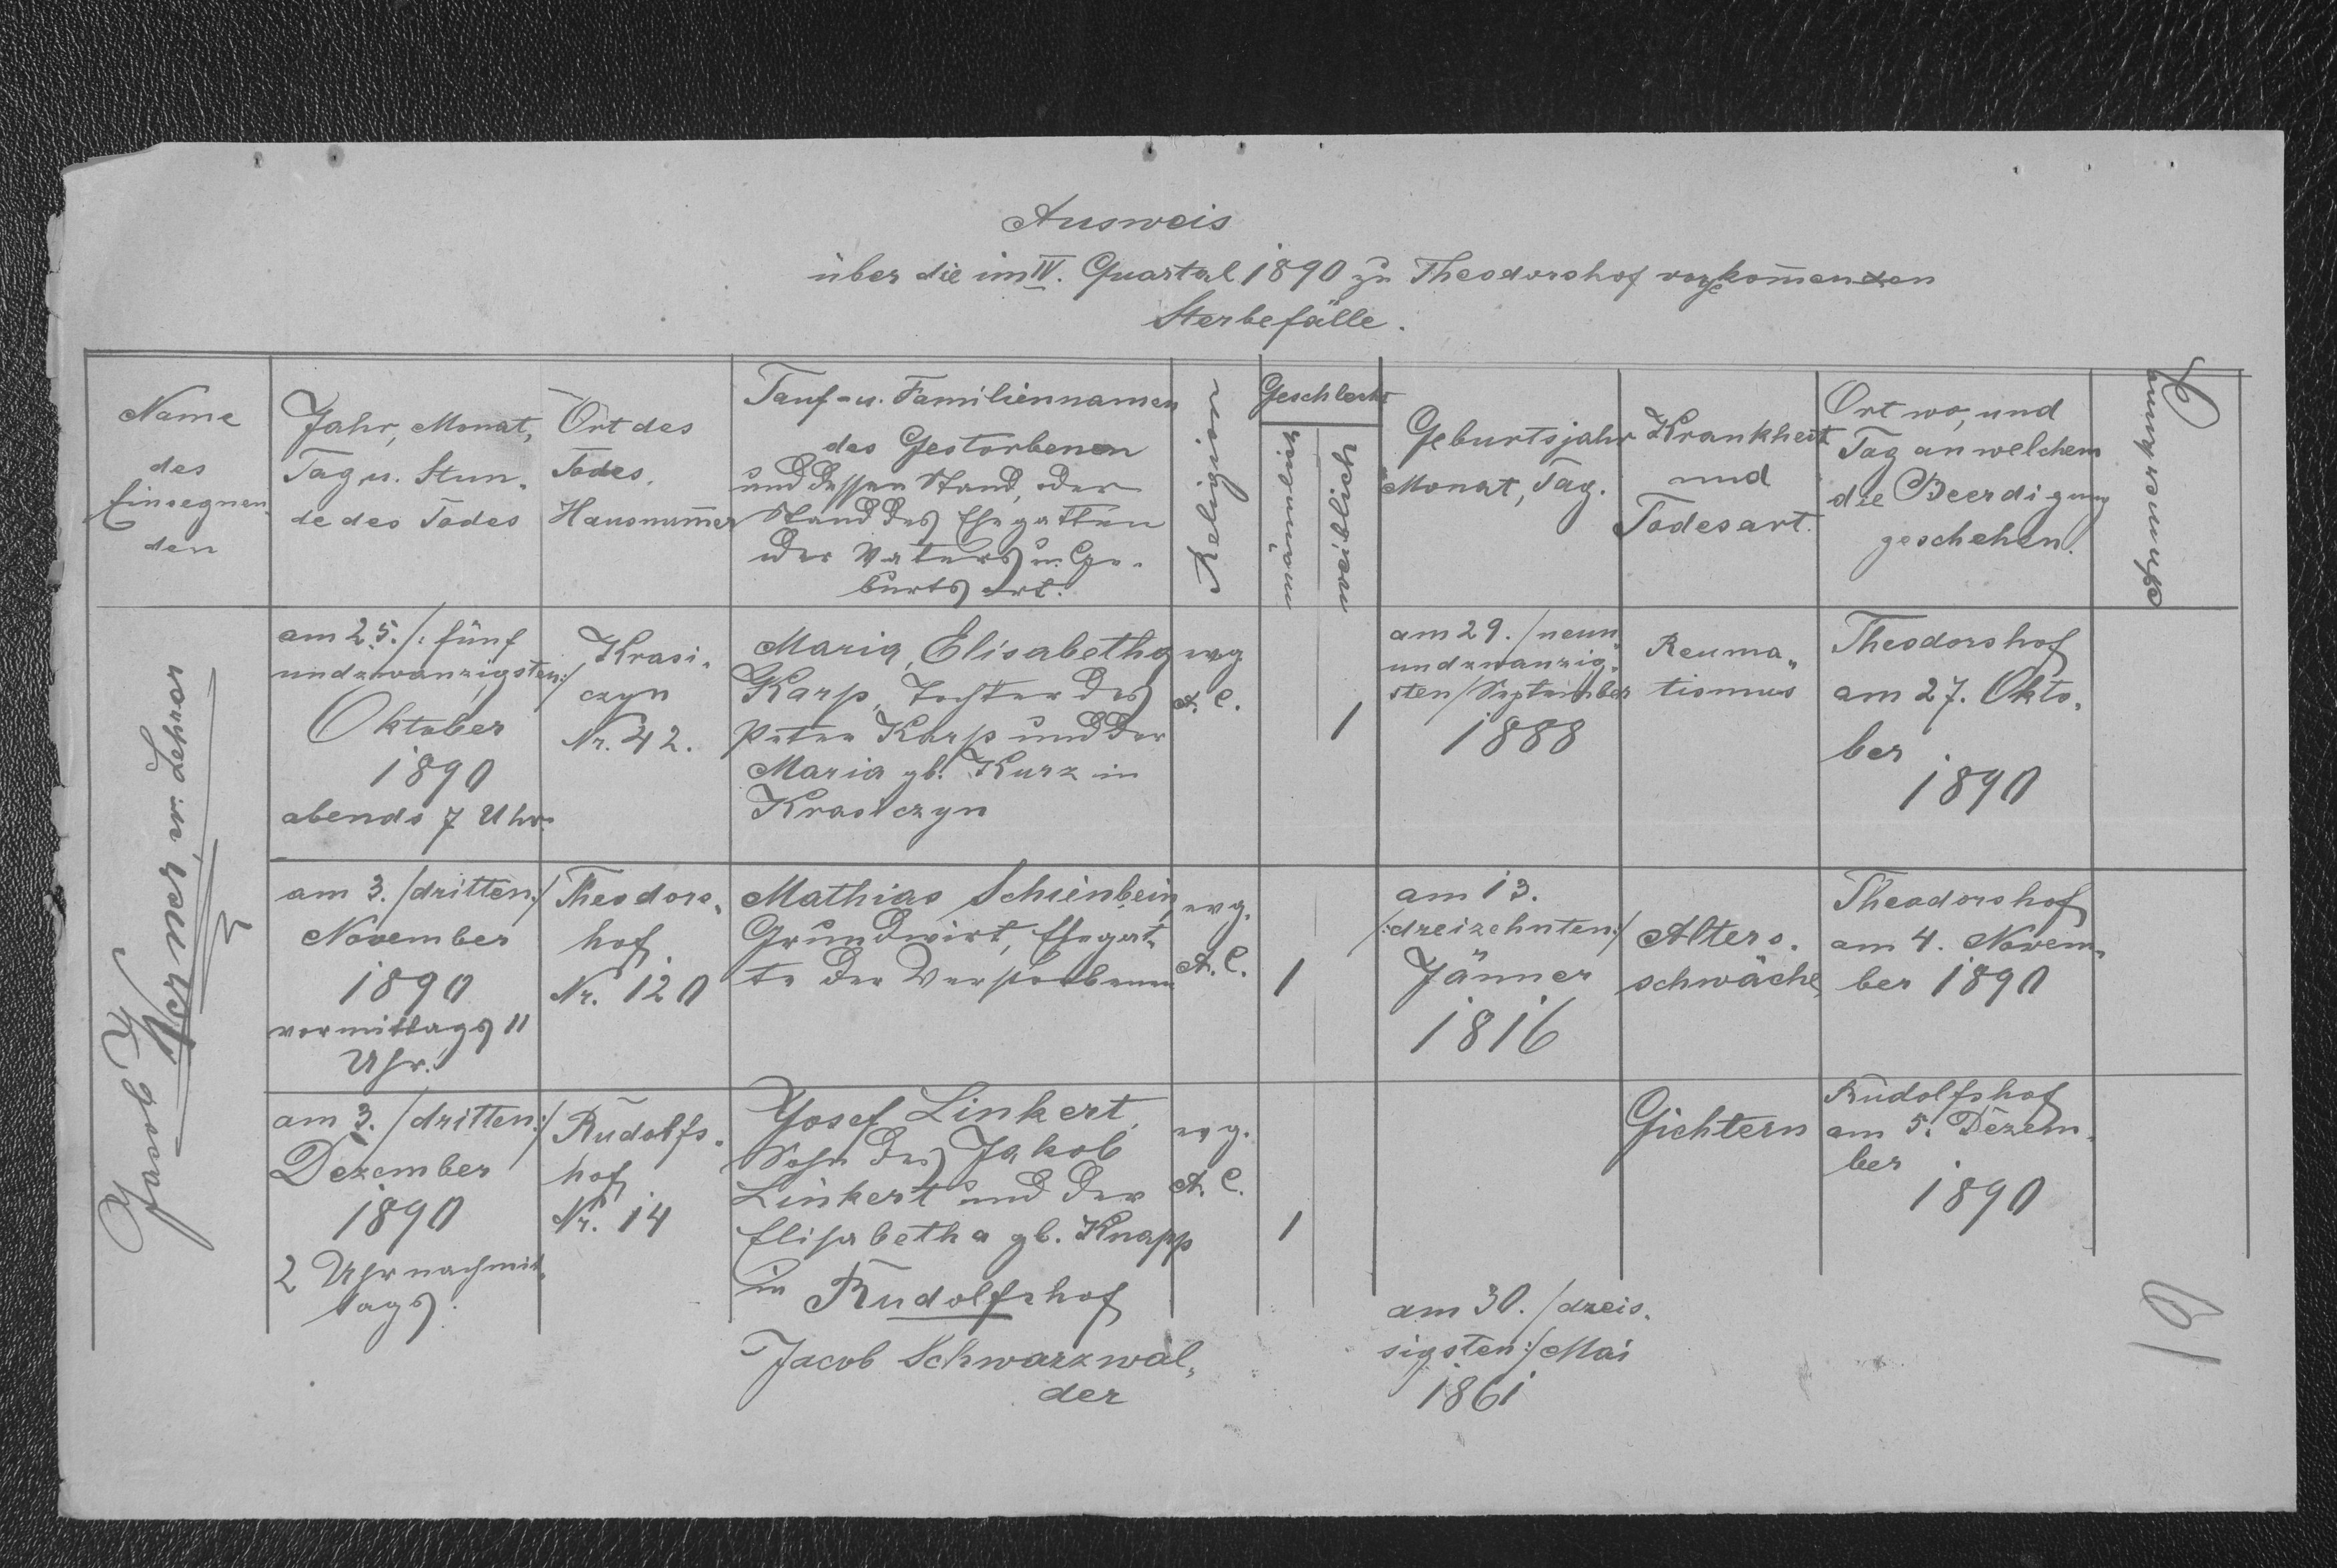 Ausweis
über die im IV. Quartal 1890 zu Theodorshof vorgekom̄enen
Sterbefälle.
Name
des
Einsegnen„
den
Jahr, Monat,
Tag u. Stun„
de des Todes
Ort des
Todes,
Hausnum̄er
Tauf- u. Familiennamen
des Gestorbenen
und dessen Stand, oder
Stand des Ehegatten
oder Vaters u. Ge„
burtsort.
Religion
Geschlecht
männlich
weiblich
Geburtsjahr
Monat, Tag.
Krankheit
und
Todesart.
Ort wo, und
Tag an welchem
die Beerdigung
geschehen.
Anmerkung
am 25. /: fünf
undzwanzigsten:/
Oktober
1890
abends 7 Uhr.
Krasi„
czyn
Nr. 42.
Maria, Elisabetha
Karp, Tochter des
Peter Karp und der
Maria gb. Kurz in
Krasiczyn
evg
A. C.
1
am 29. /neun„
undzwanzig„
sten/ September
1888
Reuma„
tismus
Theodorshof
am 27. Okto„
ber
1890
am 3. /dritten:/
November
1890
vormittags 11
Uhr.
Theodors„
hof
Nr. 120
Mathias Schienbein,
Grundwirt, Ehegat„
te der Verstorbenen
evg.
A. C.
1
am 13.
/:dreizehnten:/
Jänner
1816
Alters„
schwäche
Theodorshof
am 4. Novem„
ber 1890
am 3. /dritten:/
Dezember
1890
2 Uhr nachmit„
tags.
Rudolfs„
hof
Nr. 14
Josef Linkert,
Sohn des Jakob
Linkert und der
Elisabetha gb. Knapp
in Rudolfshof
evg.
A. C.
1
Gichtern
Rudolfshof
am 5. Dezem„
ber
1890
Jacob Schwarzwäl„
der
am 30. /dreis„
sigsten:/ Mai
1861
19